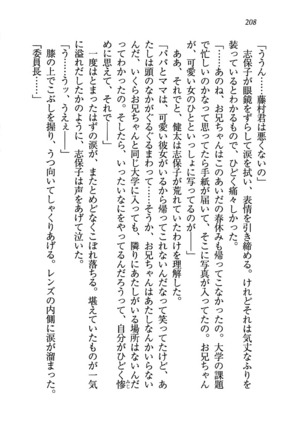 208
「ううん……藤村君は悪くないの」
志保子が眼鏡をずらして涙を拭い、表情を引き締める。けれどそれは気丈なふりを
装っているとわかるもので、ひどく痛々しかった。
「……あのね、お兄ちゃんはこのあいだの春休みも帰ってこなかったの。大学の課題
で忙しいのかなって思ってたら手紙が届いて、そこに写真が入ってたの。お兄ちゃん
が、可愛い女のひとといっしょに写ってるのが――」
ああ、それで、と、健太は志保子が荒れていたわけを理解した。
「パパとママは、可愛い彼女がいるから帰ってこれないんだなって笑ってたけど、あ
たしは頭のなかがぐるぐるまわって……そうか、お兄ちゃんはあたしなんかいらない
んだ、いくらお兄ちゃんと同じ大学に入っても、隣りにあたしがいる場所はないんだ
ってわかったの。そしたら、いったいなにをやってるんだろうって、自分がひどく惨
めに思えて、それで――」
一度はとまったはずの涙が、またとめどなくこぼれ落ちる。堪えていたものが一気
に溢れだしたかのように、志保子は声をあげて泣いた。
「う……うッ、うえぇ――」
膝の上でこぶしを握り、うつ向いてしゃくりあげる。レンズの内側に涙が溜まった。
「委員長……」